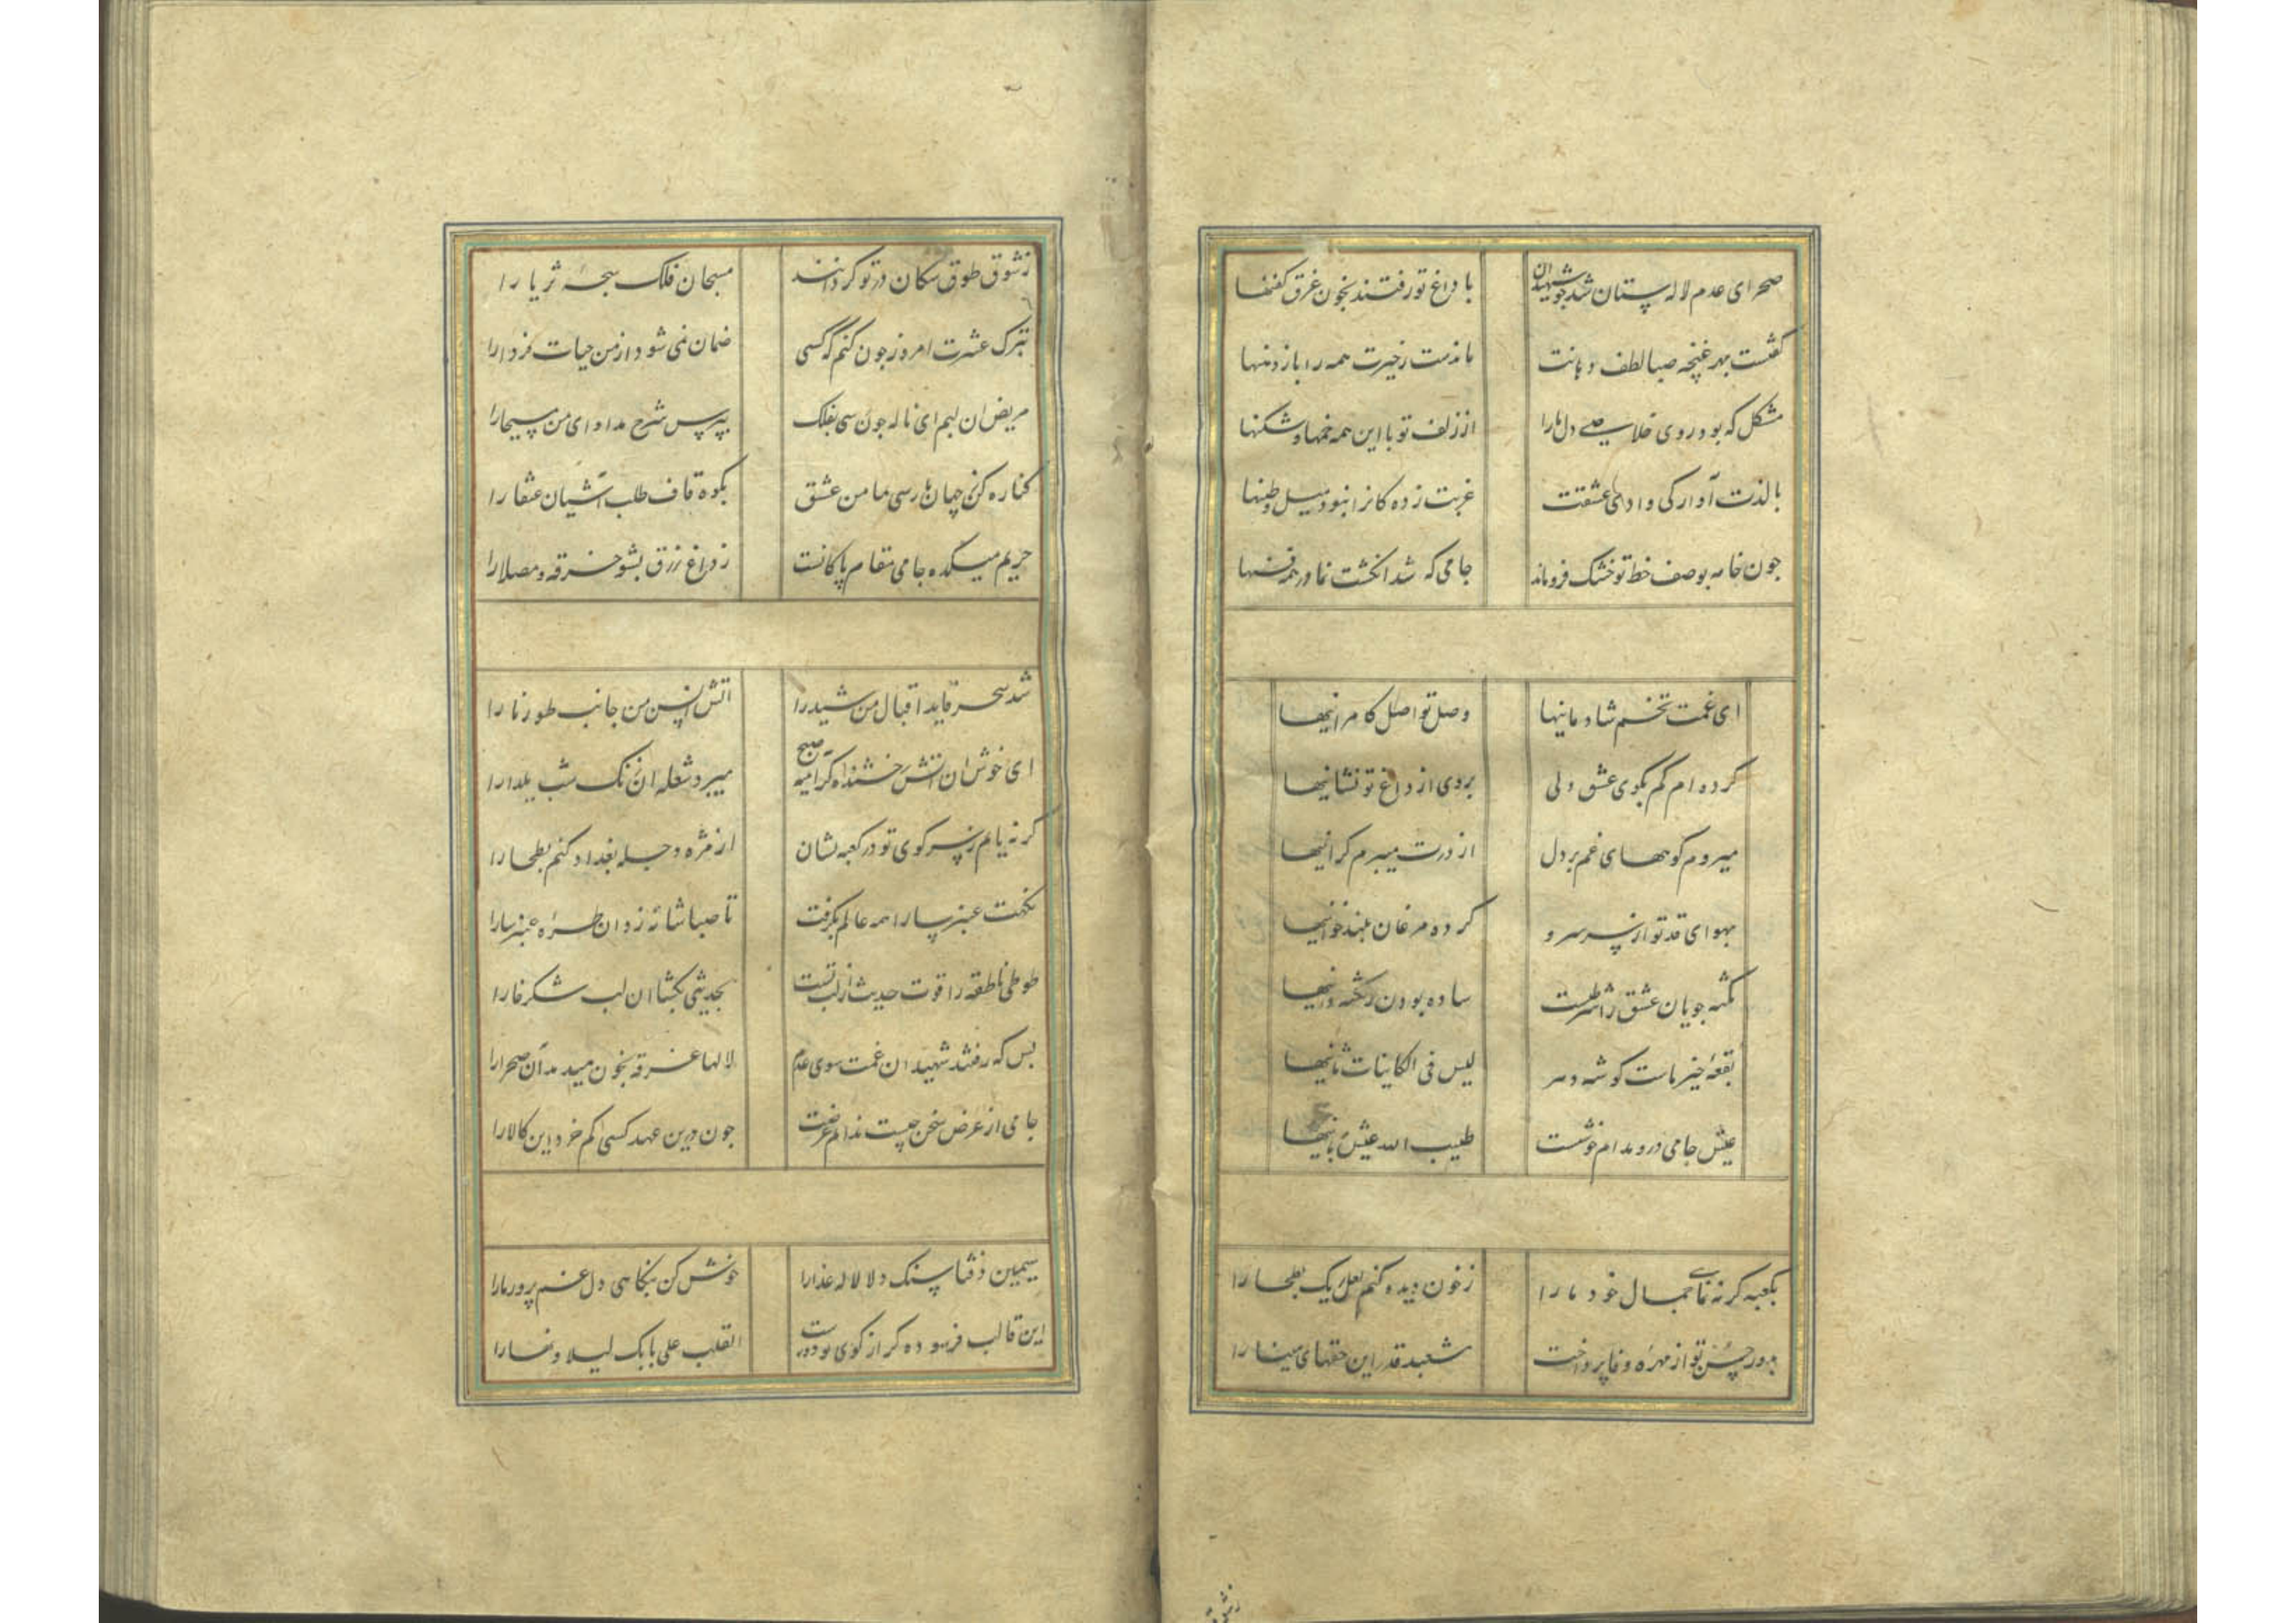 صحرای عدم لاله ستان شد جو شهیدان با داغ تو رفتند بخون غرق کفنها
کفتست بهر غنچه صبا لطف دهانت ماندست زحیرت همه را باز دهنها
مشکل که بود روی خلاصی دل ما را از زلف تو با این همه خمها و شکنها
با لذت آوارکی وادی عشقت غربت زده کانرا نبود میل وطنها
جون خامه بوصف خط تو خشک فروماند جامی که شد انکشت نما در همه فنها
ای غمت تخم شادمانیها وصل تو اصل کامرانیها
کرده ام کم بکوی عشق ولی بروی از داغ تو نشانیها
میروم کوههای غم بر دل از درت میبرم کرانیها
بهوای قد تو از سر سرو کرده مرغان بلند خوانیها
نکته جویان عشق را شرطست ساده بودن ز نکته دانیها
بقعهٔ خیر ماست کوشه دیر لیس فی الکاینات ثانیها
عیش جامی در و مدام خوشست طیب الله عیش بانیها
بکعبه کر نه نمایی جمال خود ما را زخون دیده کنم لعل ریک بطحا را
بدور حسن تو از مهره وفا پرداخت مشعبد قدر این حقهای مینا را
زشوق
زشوق طوق سکان در تو کردانند مسبحان فلک سبحهٔ ثریا را
بترک عشرت امروز جون کنم که کسی ضمان نمی شود از من حیات فردا را
مریض ان لبم ای ناله جون رسی بفلک بپرس شرح مداوای من مسیحا را
کناره کن ز جهان تا رسی بمامن عشق بکوه قاف طلب آشیان عنقا را
حریم میکده جامی مقام پاکانست ز داغ زرق بشو خرقه و مصلا را
شد سحر قاید اقبال من شیدا را اتش انس من جانب طور نارا
ای خوش ان اتش رخشنده که از میم صبح میبرد شعله ان زنک شب یلدا را
کر نه یابم ز سر کوی تو در کعبه نشان از مژه دجله بغداد کنم بطحا را
نکهت عنبر سارا همه عالم بکرفت تا صبا شانه زد ان طره عنبر سا را
طوطی ناطقه را قوت حدیث از لب تست بحدیثی بکشا ان لب شکرخا را
بس که رفتند شهیدان غمت سوی عدم لالها غرقه بخون میدمد آن صحرا را
جامی از عرض سخن چیست ندانم غرضت جون درین عهد کسی کم خرد این کالا را
سیمین ذقنا سنک دلا لاله عذارا خوش کن بنکاهی دل غم پرور ما را
این قالب فرسوده کر از کوی تو دورست القلب علی بابک لیلا و نهارا